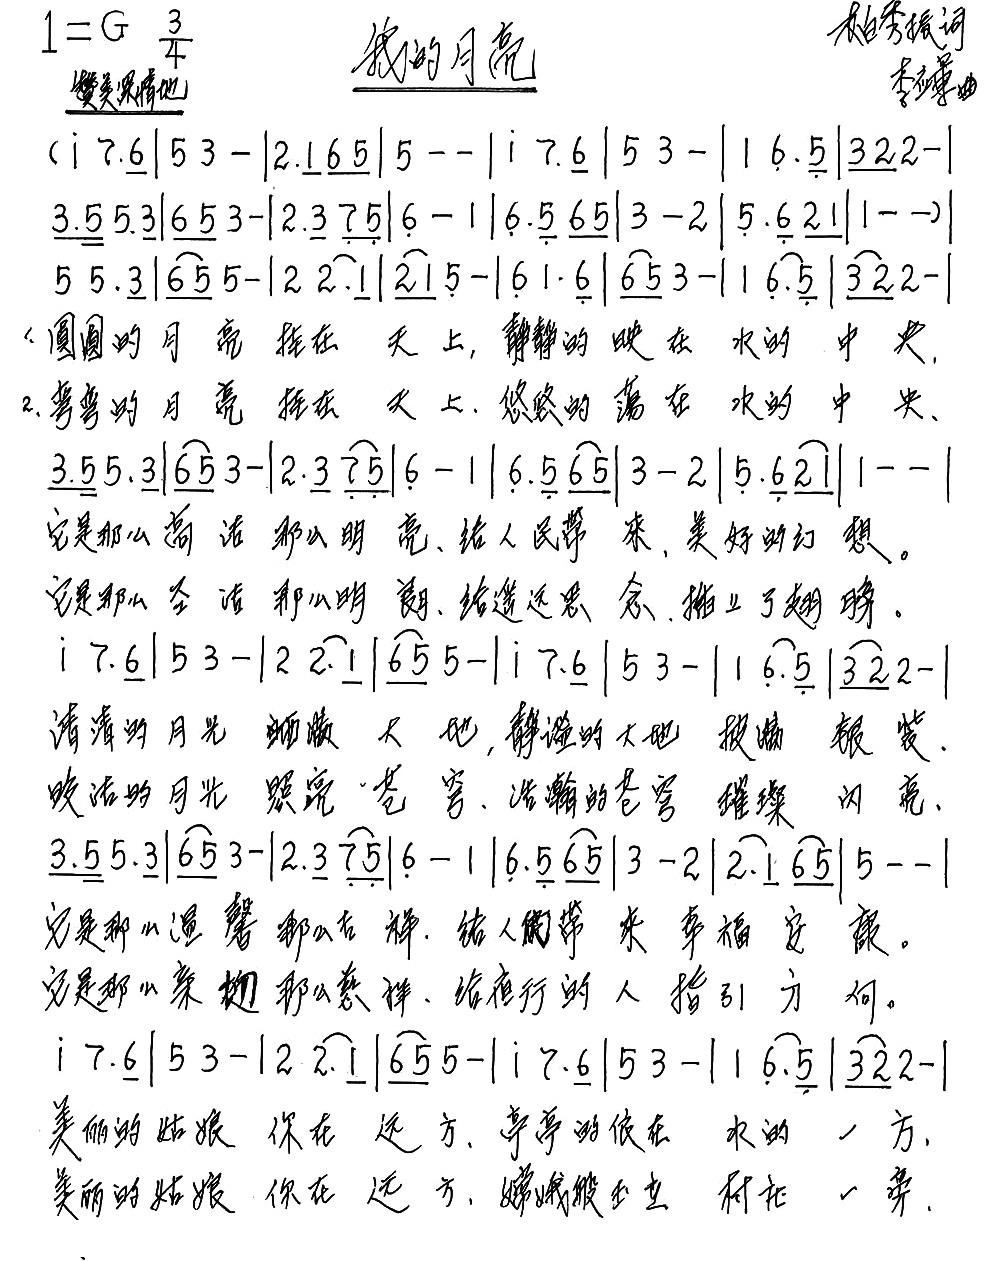 1=G 3/4
我的月亮
秀振词
赞美深情地
李 曲
(i 7.6|5 3 -|2.1 6 5|5 - -|i 7.6|5 3 -|1 6.5|3 2 2 -|
3.5 5.3|6 5 3 -|2.3 7 5|6 - 1|6.5 6 5|3 - 2|5.6 2 1|1 - -)|
5 5.3|6 5 5 -|2 2.1|2 1 5 -|6 1.6|6 5 3 -|1 6.5|3 2 2 -|
1.圆圆的月亮挂在天上,静静的映在水的中央,
2.弯弯的月亮挂在天上.悠悠的荡在水的中央、
3.5 5.3|6 5 3 -|2.3 7 5|6 - 1|6.5 6 5|3 - 2|5.6 2 1|1 - -|
它是那么高洁那么明亮、给人民带来,美好的幻想。
它是那么圣洁那么明朗、给遥远思念、插上了翅膀。
i 7.6|5 3 -|2 2.1|6 5 5 -|i 7.6|5 3 -|1 6.5|3 2 2 -|
清清的月光洒满大地,静谧的大地披满银装.
皎洁的月光照亮苍穹、浩瀚的苍穹璀璨闪亮、
3.5 5.3|6 5 3 -|2.3 7 5|6 - 1|6.5 6 5|3 - 2|2.1 6 5|5 - -|
它是那么温馨那么吉祥.给人们带来幸福安康。
它是那么亲切那么慈祥、给夜行的人指引方向。
i 7.6|5 3 -|2 2.1|6 5 5 -|i 7.6|5 3 -|1 6.5|3 2 2 -|
美丽的姑娘你在远方、亭亭的依在水的一方,
美丽的姑娘你在远方、嫦娥般玉立村在一旁.